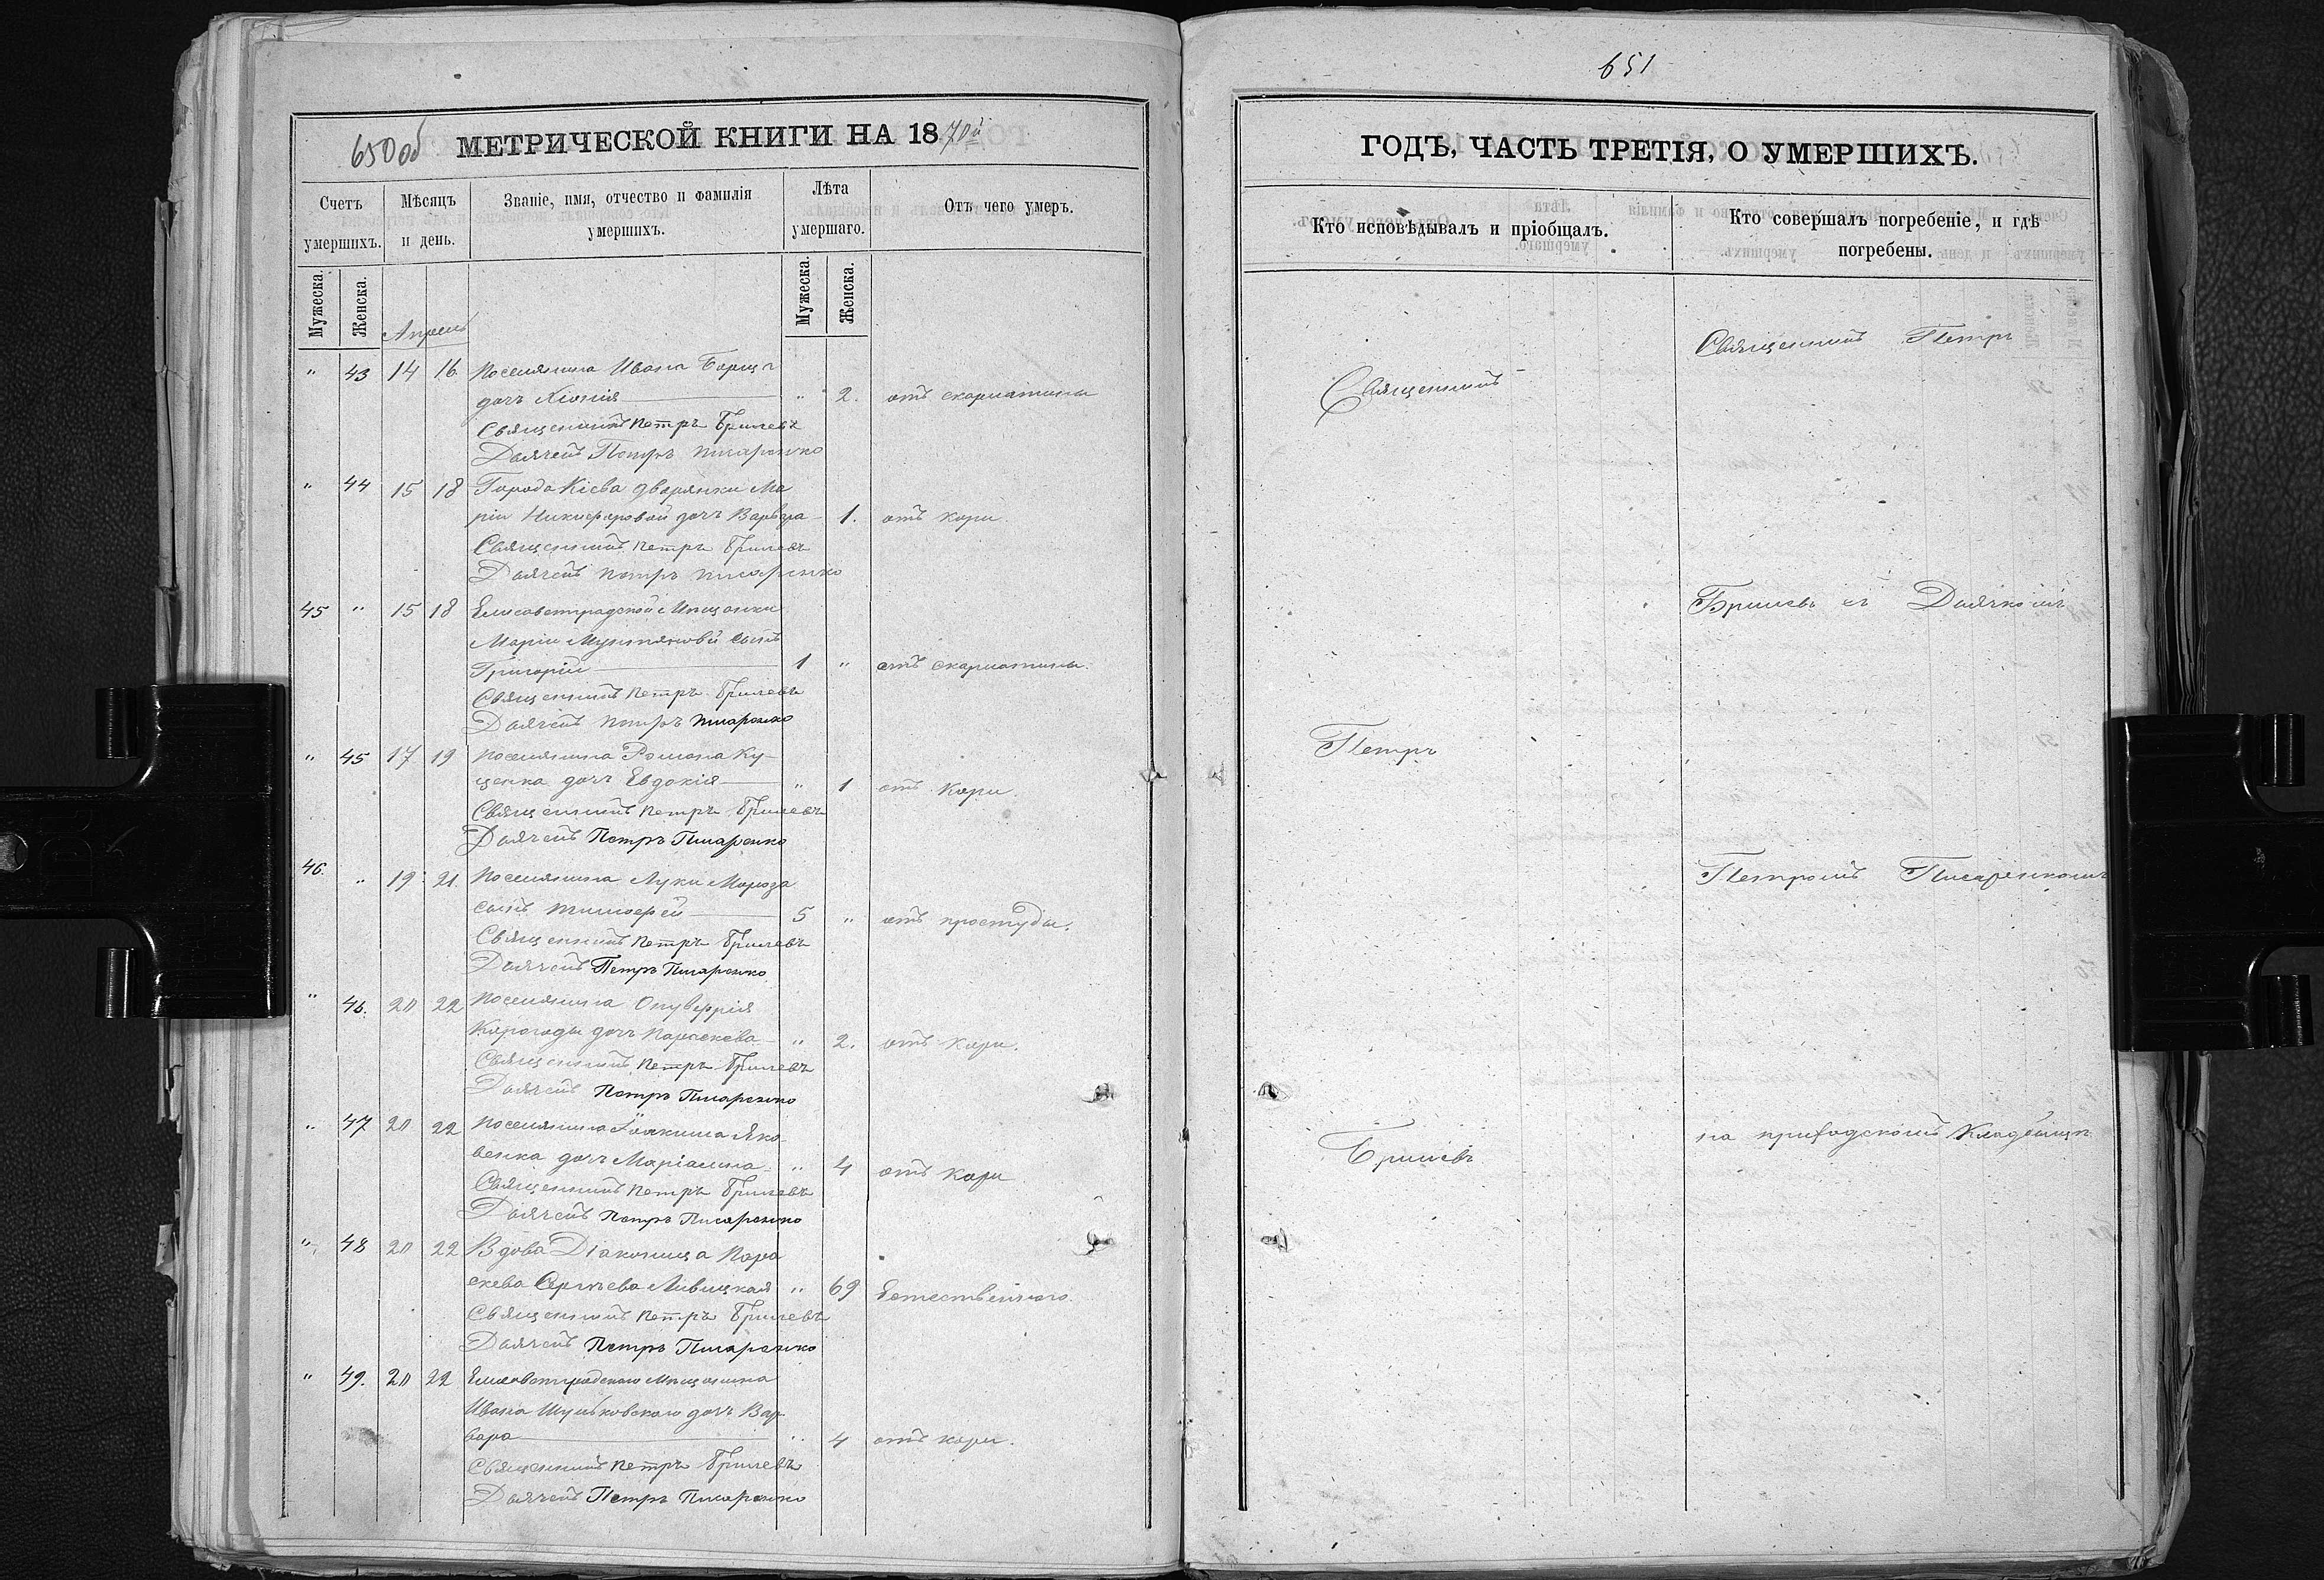 650 об
МЕТРИЧЕСКОЙ КНИГИ НА 1870й
Счетъ умершихъ.
Мѣсяцъ и день.
Званіе, имя, отчество и фамилія умершихъ.
Лѣта умершаго.
Отъ чего умеръ.
Мужеска.
Женска.
Мужеска.
Женска.
Апрель
" 43 14 16 Поселянина Ивана Борща
дочь Хіонія " 2. отъ скарлатины
Священникъ Петръ Бришевъ
Дьячекъ Петръ Писаренко
" 44 15 18 Города Кіева дворянки Ма
ріи Никифоровой дочь Варвара 1. отъ кори.
Священникъ Петръ Бришевъ
Дьячекъ Петръ Писаренко
45 " 15 18 Елисаветградской Мѣщанки
Маріи сынъ
Григорій 1 " отъ скарлатины.
Священникъ Петръ Бришевъ
Дьячекъ Петръ Писаренко
" 45 17 19 Поселянина Романа Ку-
ценка дочь Евдокія " 1 отъ кори.
Священникъ Петръ Бришевъ
Дьячекъ Петръ Писаренко
46. " 19 21. Поселянина Луки Мороза
сынъ Тимофей 5 " отъ простуды.
Священникъ Петръ Бришевъ
Дьячекъ Петръ Писаренко
" 46. 20 22 Поселянина Онуфрія
дочь Параскева " 2. отъ кори.
Священникъ Петръ Бришевъ
Дьячекъ Петръ Писаренко
" 47 20 22 Поселянина Іоакима Яко-
венка дочь Маріанна " 4 отъ кори
Священникъ Петръ Бришевъ
Дьячекъ Петръ Писаренко
" 48 20 22 Вдова Діаконица Пара
скева Сергѣева Ливицкая " 69 Естественного.
Священникъ Петръ Бришевъ
Дьячекъ Петръ Писаренко
" 49. 20 22 Елисаветградского Мѣщанина
Ивана Шульковского дочь Вар-
вара " 4 отъ кори.
Священникъ Петръ Бришевъ
Дьячекъ Петръ Писаренко
651
ГОДЪ, ЧАСТЬ ТРЕТІЯ, О УМЕРШИХЪ.
Кто исповѣдывалъ и пріобщалъ.
Кто совершалъ погребеніе, и гдѣ погребены.
Священникъ
Петръ
Бришевъ
Священникъ Петръ
Бришевъ съ Дьячкомъ
Петромъ Писаренкомъ
на приходскомъ Кладбищѣ